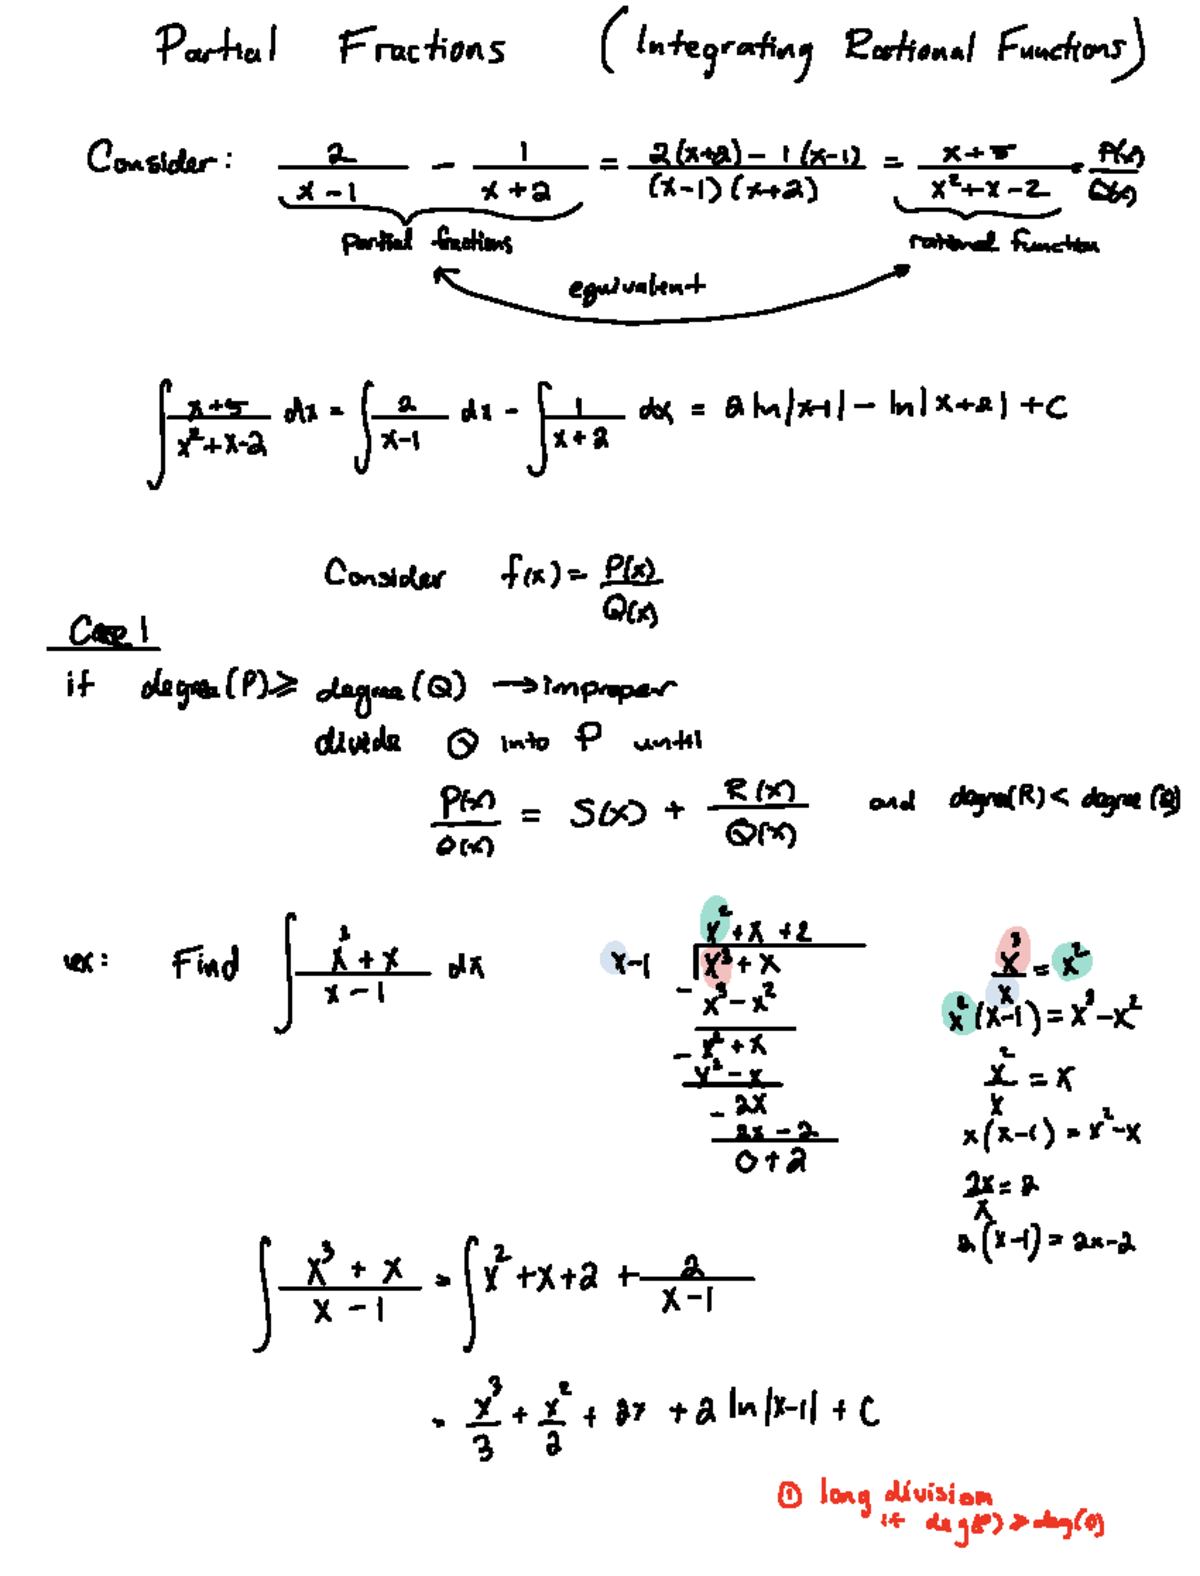 Partial Fractions (Integrating Rational Functions)
Consider: 2/(x-1) - 1/(x+2) = (2(x+2) - 1(x-1))/((x-1)(x+2)) = (x+5)/(x²+x-2) = P(x)/Q(x)
partial fractions rational function
equivalent
∫ (x+5)/(x²+x-2) dx = ∫ 2/(x-1) dx - ∫ 1/(x+2) dx = 2 ln|x-1| - ln|x+2| + C
Consider f(x) = P(x)/Q(x)
Case 1
if degree(P) ≥ degree(Q) → improper
divide Q into P until
P(x)/Q(x) = S(x) + R(x)/Q(x) and degree(R) < degree(Q)
ex: Find ∫ (x³+x)/(x-1) dx
x²+x+2
x-1 x³+x
- x³-x²
x²+x
- x²-x
2x
- 2x-2
0+2
x³/x = x²
x²(x-1) = x³-x²
x²/x = x
x(x-1) = x²-x
2x/x = 2
2(x-1) = 2x-2
∫ (x³+x)/(x-1) = ∫ x²+x+2 + 2/(x-1)
= x³/3 + x²/2 + 2x + 2 ln|x-1| + C
① long division
if deg(P) ≥ deg(Q)